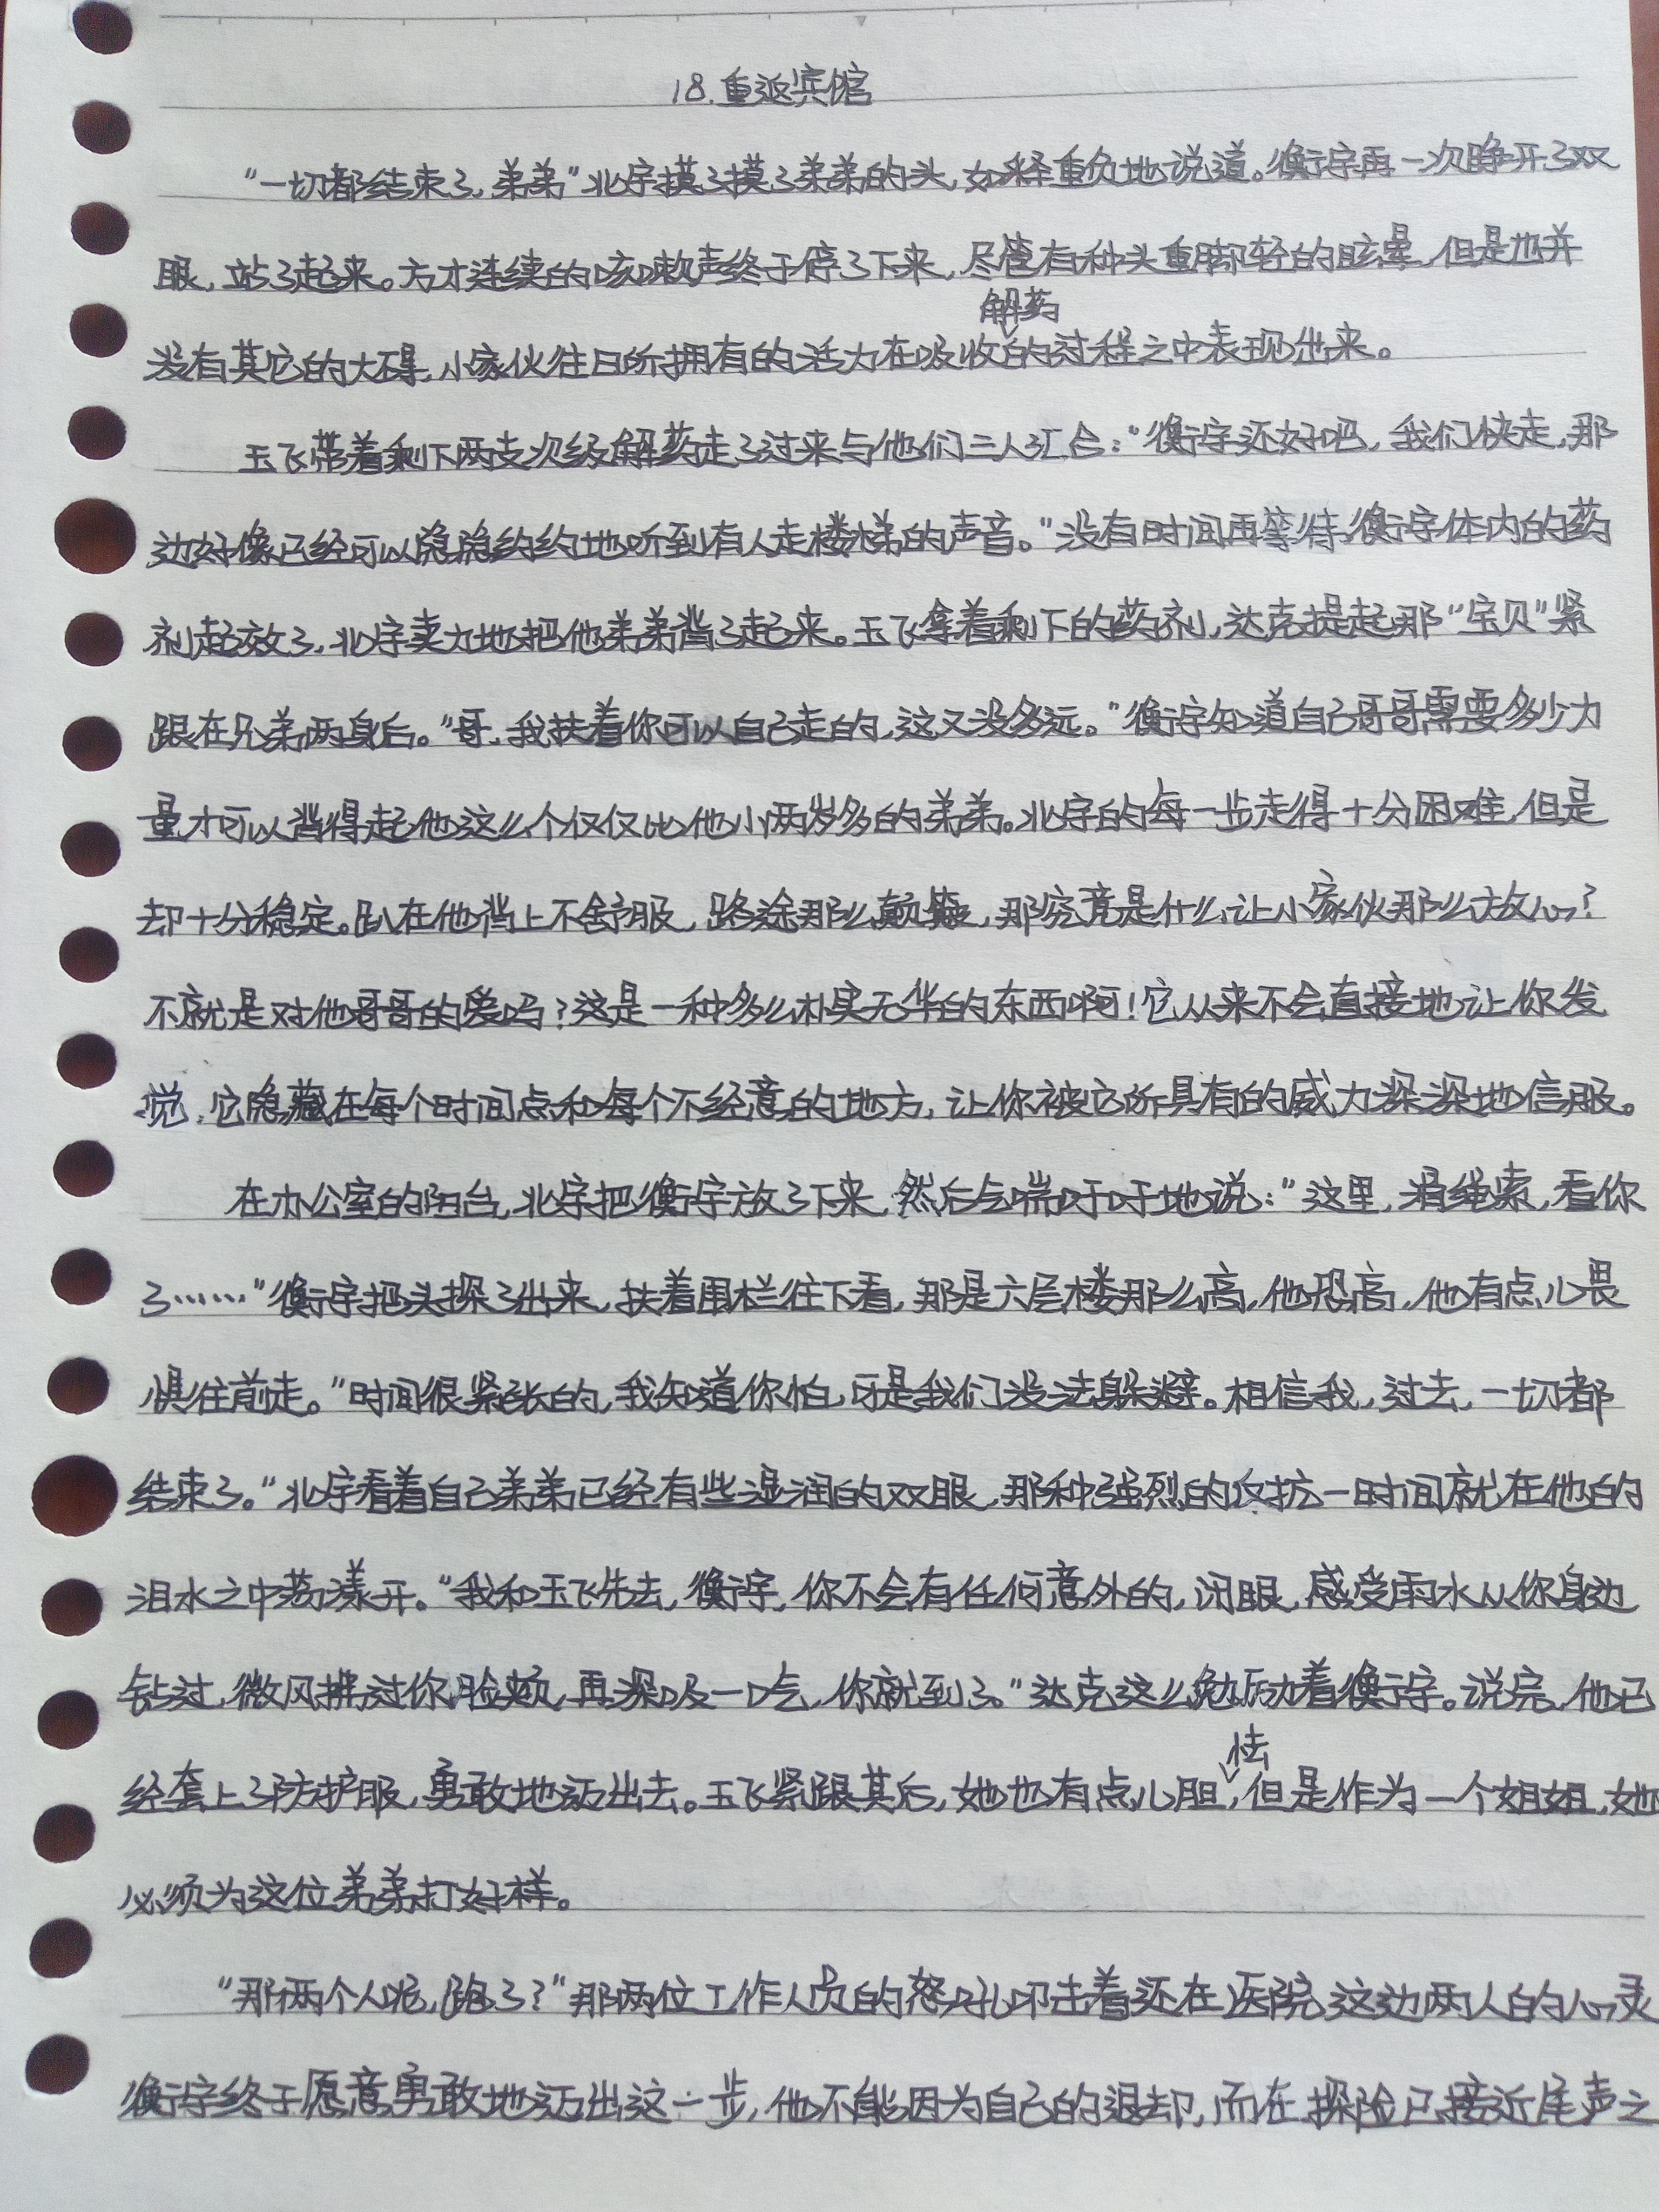 18.重返宾馆
“一切都结束了,弟弟”北宇摸了摸了弟弟的头,如释重负地说道。衡宇再一次睁开了双
眼,站了起来。方才连续的咳嗽声终于停了下来,尽管有种头重脚轻的眩晕,但是也并
解药
没有其它的大碍,小家伙往日所拥有的活力在吸收的过程之中表现出来。
玉飞带着剩下两支次级解药走了过来与他们三人汇合:“衡宇还好吧,我们快走,那
边好像已经可以隐隐约约地听到有人走楼梯的声音。”没有时间再等待衡宇体内的药
剂起效了,北宇卖力地把他弟弟背了起来。玉飞拿着剩下的药剂,达克提起那“宝贝”紧
跟在兄弟两身后。“哥,我扶着你可以自己走的,这又没多远。”衡宇知道自己哥哥需要多少力
量才可以背得起他这么个仅仅比他小两岁多的弟弟。北宇的每一步走得十分困难,但是
却十分稳定。趴在他背上不舒服,路途那么颠簸,那究竟是什么让小家伙那么放心?
不就是对他哥哥的爱吗?这是一种多么朴实无华的东西啊!它从来不会直接地让你发
觉,它隐藏在每个时间点和每个不经意的地方,让你被它所具有的威力深深地信服。
在办公室的阳台,北宇把衡宇放了下来,然后气喘吁吁地说:“这里,滑绳索,看你
了……”衡宇把头探了出来,扶着围栏往下看,那是六层楼那么高,他恐高,他有点儿畏
惧往前走。“时间很紧张的,我知道你怕,可是我们没法躲避。相信我,过去,一切都
结束了。“北宇看着自己弟弟已经有些湿润的双眼,那种强烈的反抗一时间就在他的
泪水之中荡漾开。“我和玉飞先去,衡宇,你不会有任何意外的,闭眼,感受雨水从你身边
钻过,微风拂过你脸颊,再深吸一口气,你就到了。”达克这么勉励着衡宇。说完,他已
怯
经套上了防护服,勇敢地迈出去。玉飞紧跟其后,她也有点儿胆,但是作为一个姐姐,她
必须为这位弟弟打好样。
“那两个人呢,跑了?”那两位工作人员的怒吼叩击着还在医院这边两人的心灵
衡宇终于愿意勇敢地迈出这一步,他不能因为自己的退却,而在探险已接近尾声之